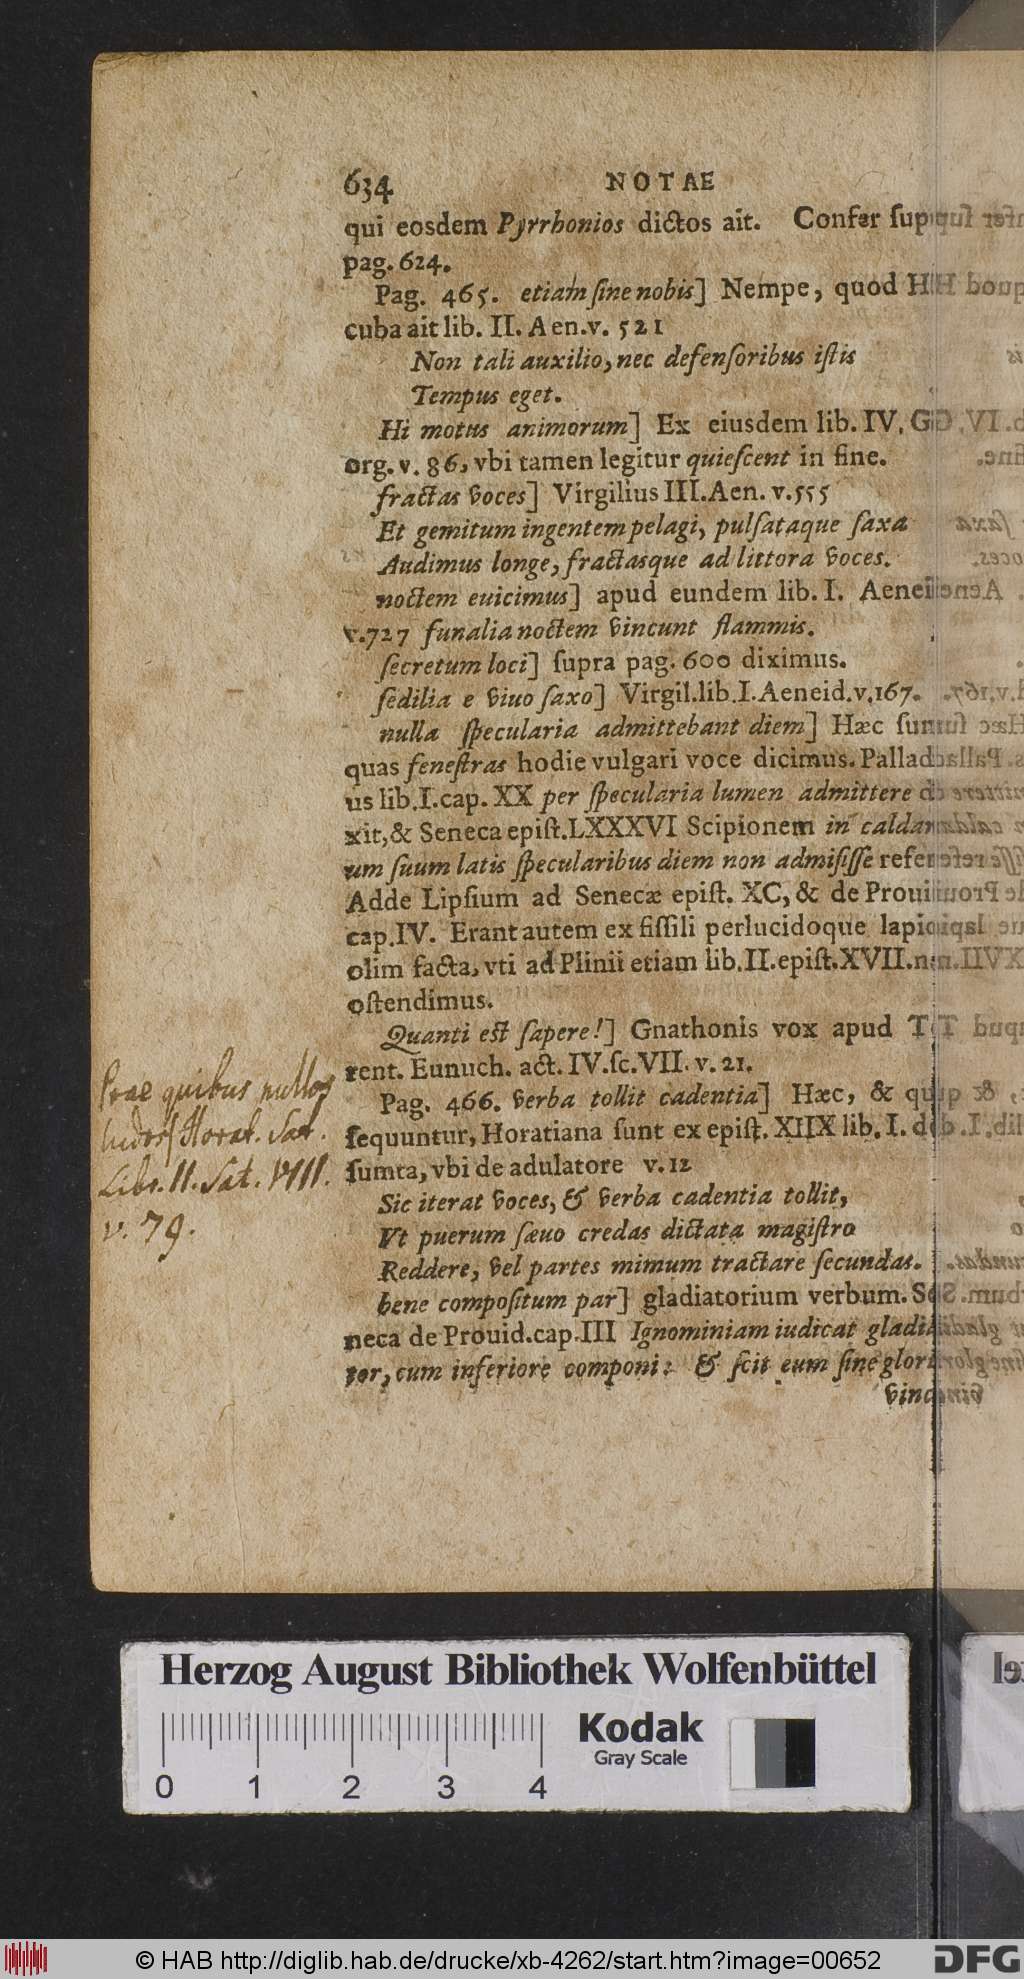 634 NOTAE
qui eosdem Pyrrhonios dictos ait. Confer sup
pag. 624.
Pag. 465. etiam sine nobis] Nempe, quod H
cuba ait lib. II. Aen. v. 521
Non tali auxilio, nec defensoribus istis
Tempus eget.
Hi motus animorum] Ex eiusdem lib. IV. G
org. v. 86, vbi tamen legitur quiescent in fine.
fractas voces] Virgilius III. Aen. v. 555
Et gemitum ingentem pelagi, pulsataque saxa
Audimus longe, fractasque ad littora voces.
noctem euicimus] apud eundem lib. I. Aenei
v. 727 funalia noctem vincunt flammis.
secretum loci] supra pag. 600 diximus.
sedilia e viuo saxo] Virgil. lib. I. Aeneid. v. 167.
nulla specularia admittebant diem] Hæc sunt
quas fenestras hodie vulgari voce dicimus. Palladi
us lib. I. cap. XX per specularia lumen admittere d
xit, & Seneca epist. LXXXVI Scipionem in caldari
um suum latis specularibus diem non admisisse refer
Adde Lipsium ad Senecæ epist. XC, & de Proui
cap. IV. Erant autem ex fissili perlucidoque lapi
olim facta, vti ad Plinii etiam lib. II. epist. XVII. n.
ostendimus.
Quanti est sapere!] Gnathonis vox apud T
rent. Eunuch. act. IV. sc. VII. v. 21.
Pag. 466. verba tollit cadentia] Hæc, & qu
sequuntur, Horatiana sunt ex epist. XIIX lib. I. de
sumta, vbi de adulatore v. 12
Sic iterat voces, & verba cadentia tollit,
Vt puerum sæuo credas dictata magistro
Reddere, vel partes mimum tractare secundas.
bene compositum par] gladiatorium verbum. Se
neca de Prouid. cap. III Ignominiam iudicat gladia
tor, cum inferiore componi: & scit eum sine glori
vinc
Prae quibus nullos
ludos] Horat. Sat.
Libr. II. Sat. VIII.
v. 79.
Herzog August Bibliothek Wolfenbüttel
0 1 2 3 4
Kodak
Gray Scale
© HAB http://diglib.hab.de/drucke/xb-4262/start.htm?image=00652
DFG